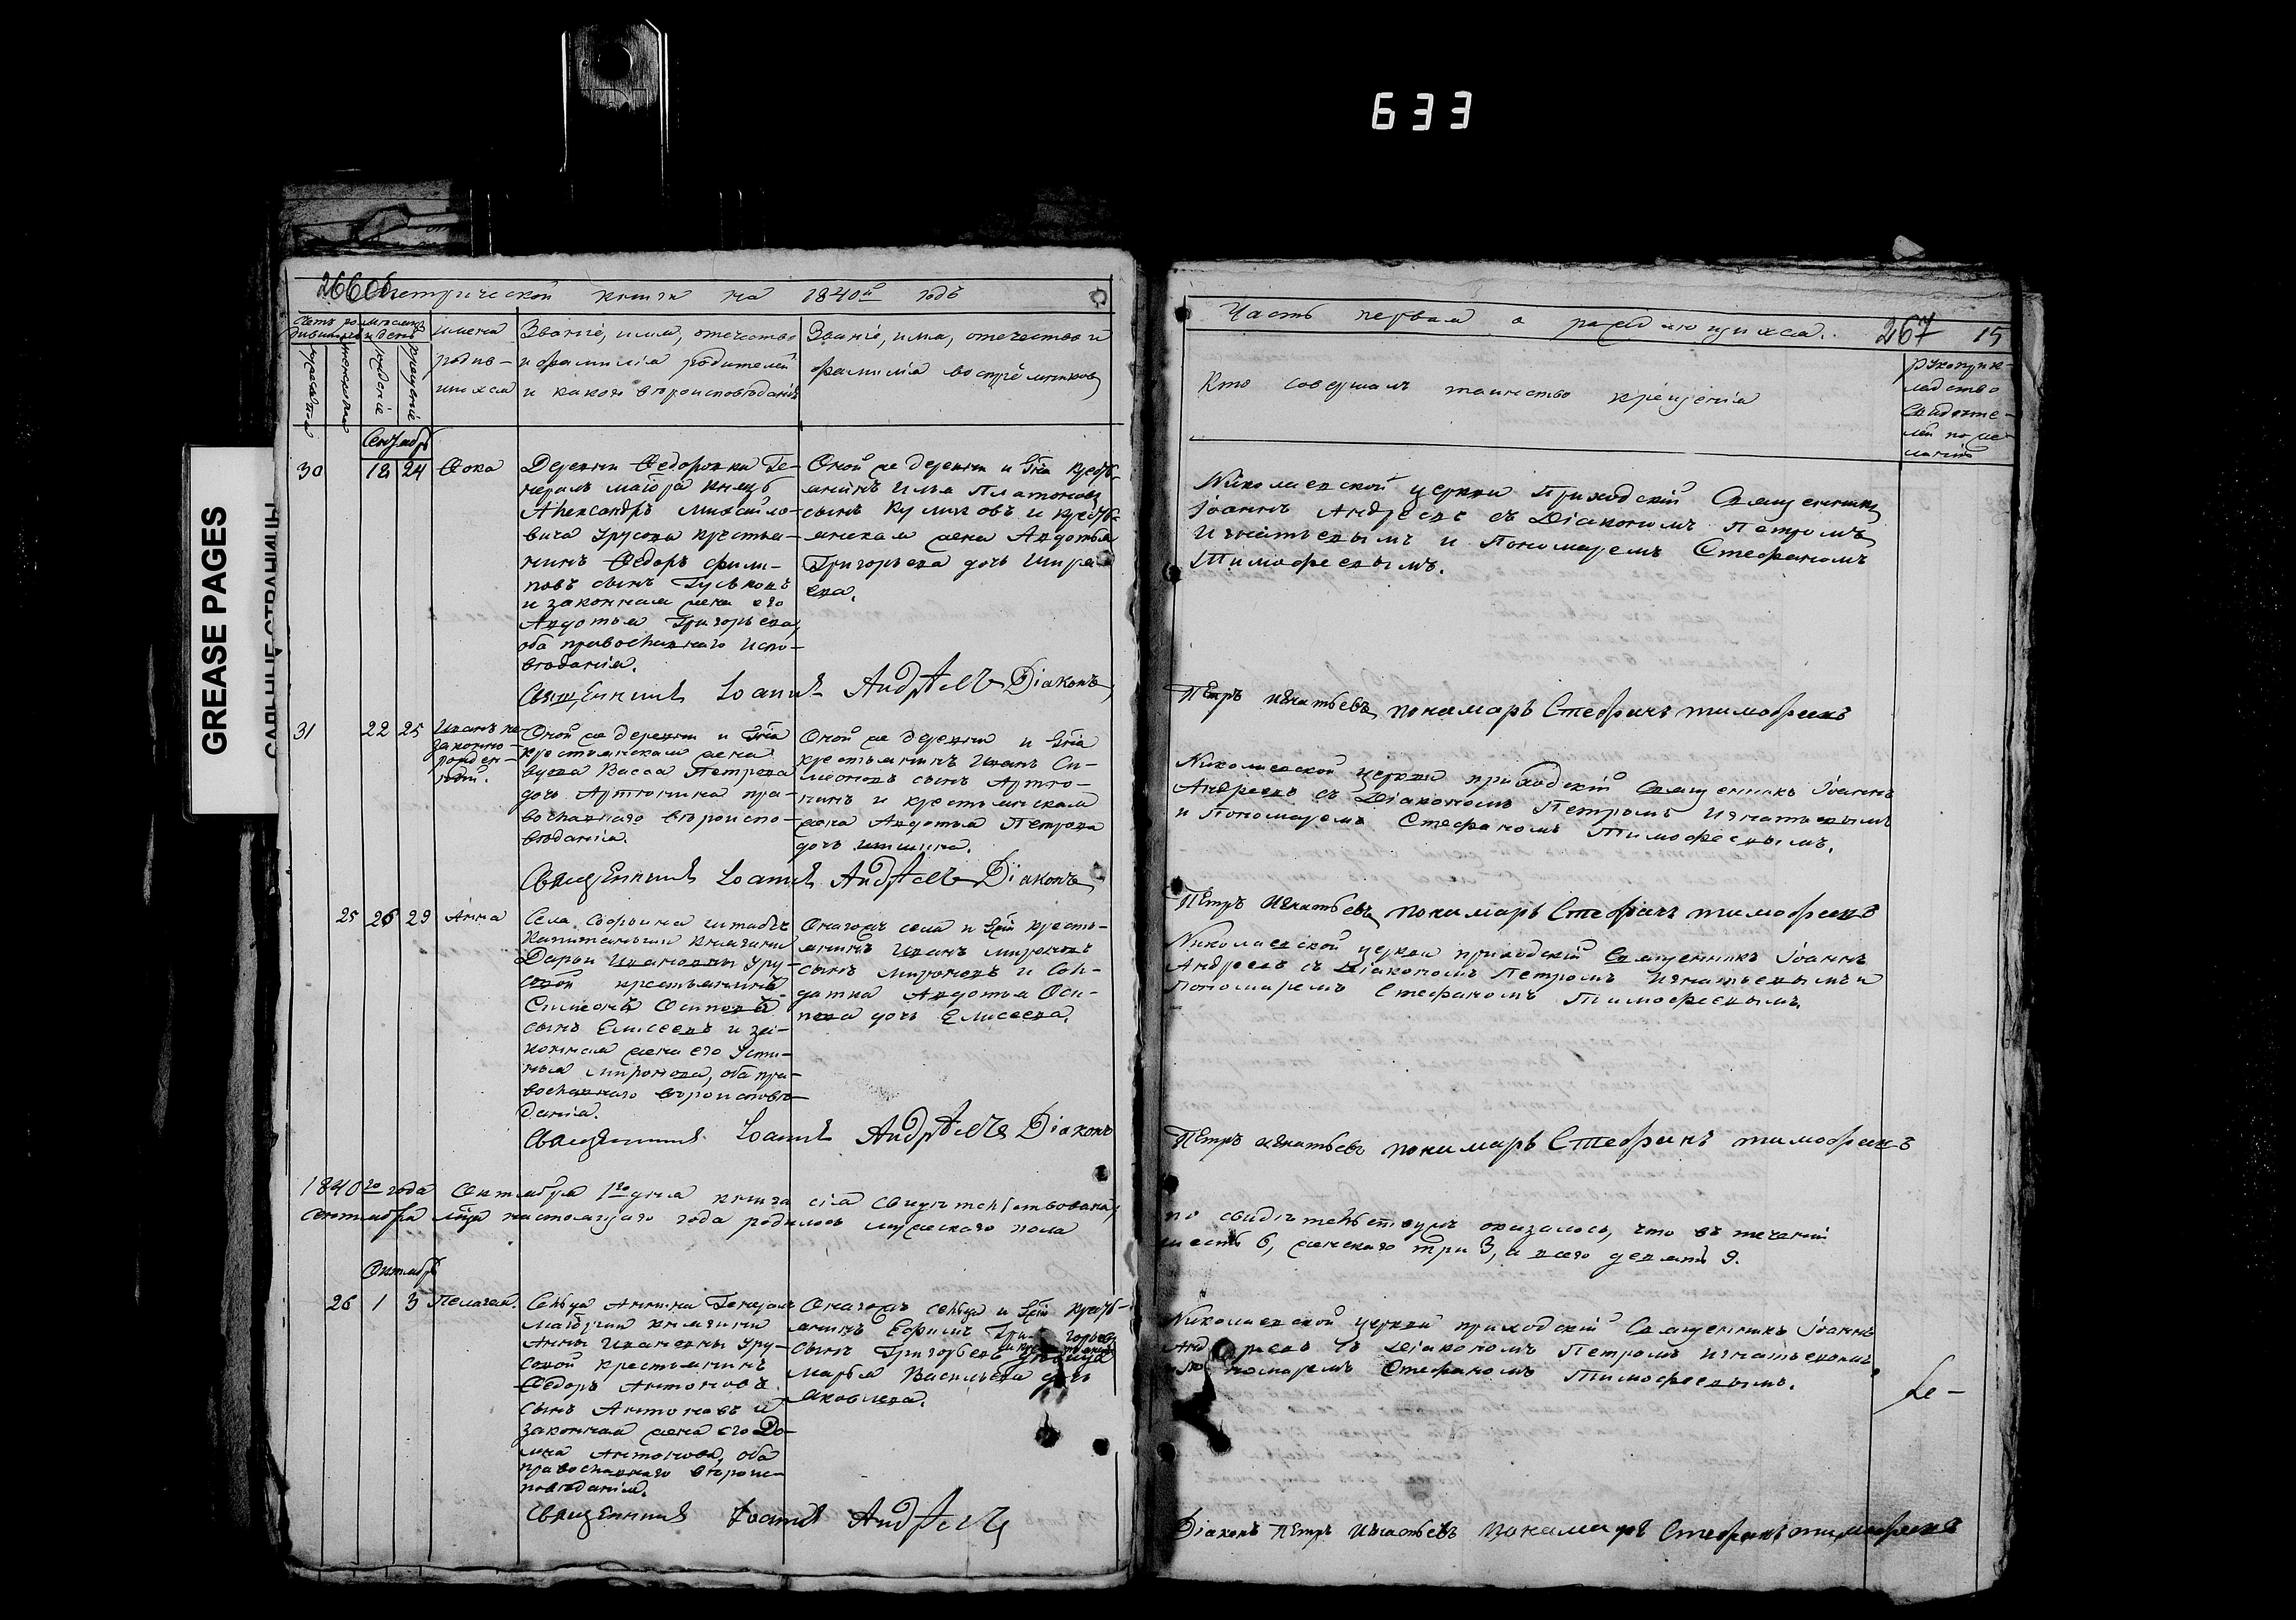 633
GREASE PAGES
САЛЬНЫЕ СТРАНИЦЫ
266 Метрической книги на 1840й годъ
Счетъ родившихся
мѣсяцъ и день
мужеска пола
женска пола
рожденiе
крещенiе
имена
родив-
шихся
Званiе, имя, отечество
и фамилiя родителей
и какого вѣроисповѣданiя
Званiе, имя, отечество и
фамилiя воспрiемниковъ
Сентябрь
30 18 24 Фока
Деревни Федоровки Ге-
нералъ маiора князь
Александръ Михайло-
вича Урусова крестья-
нинъ Федоръ Фили-
повъ сынъ Гуськовъ
и законная жена его
Авдотья Григорьева,
оба православнаго испо-
вѣданiя.
Оной же деревни и Гна крестья-
янинъ Илья Платоновъ
сынъ Куликовъ и кресть-
янская жена Авдотья
Григорьева дочь Ширяе
ева.
Священникъ Iоаннъ Андреевъ Дiаконъ
31 22 25 Иванъ не
законно-
рожден-
ный.
Оной же деревни и Гна
крестьянская жена
вдова Васса Петрова
дочь Артюнина пра-
вославнаго вѣроиспо-
вѣданiя.
Оной же деревни и Гна
крестьянинъ Иванъ Си-
меоновъ сынъ Артю-
нинъ и крестьянская
жена Авдотья Петрова
дочь
Священникъ Iоаннъ Андреевъ Дiаконъ
25 26 29 Анна
Села Софьина штабсъ
Капитанши княгини
Дарьи Ивановны Уру-
совой крестьянина
Симеона Осипова
сынъ Елисеевъ и за-
конная жена его Усти-
нья Миронова, оба пра-
вославнаго вѣроисповѣ-
данiя.
Онагожъ села и Гжи кресть-
янинъ Иванъ Мироновъ
сынъ Мироновъ и Сол-
датка Авдотья Оси-
пова дочь Елисеева.
Священникъ Iоаннъ Андреевъ Дiаконъ
1840го года Октября 1го дня книга сiя свидѣтельствована,
Сентября мца настоящаго года родилось мужескаго пола
Октябрь
26 1 3 Пелагея.
Сельца Аннина Генералъ
Маiорши княгини
Анны Ивановны Уру-
совой крестьянинъ
Федоръ Антоновъ
сынъ Антоновъ и
законная жена его До-
мна Антонова, оба
православнаго вѣроис-
повѣданiя.
Онагожъ сельца и Гжи кресть-
янинъ Ефимъ Григорьевъ
сынъ Григорьевъ
Марья Васильева дочь
Яковлева.
Священникъ Iоаннъ Андреевъ
Часть первая о рождающихся. 267 15
Кто совершалъ таинство крещенiя
рукоприк-
ладство
Свидѣте-
лей по же-
ланiю
Николаевской церкви Приходскiй Священникъ
Iоаннъ Андреевъ съ Дiакономъ Петромъ
Игнатьевымъ и Пономаремъ Стефаномъ
Тимофеевымъ.
Петръ Игнатьевъ пономарь Стефанъ тимофеевъ
Николаевской церкви приходскiй Священникъ Iоаннъ
Андреевъ съ Дiакономъ Петромъ Игнатьевымъ
и Пономаремъ Стефаномъ Тимофеевымъ.
Петръ Игнатьевъ пономарь Стефанъ тимофеевъ
Николаевской церкви приходскiй Священникъ Iоаннъ
Андреевъ съ Дiакономъ Петромъ Игнатьевымъ и
Пономаремъ Стефаномъ Тимофеевымъ.
Петръ Игнатьевъ пономарь Стефанъ тимофеевъ
по свидѣтельствуемъ оказалось, что въ теченiи
шесть 6, женскаго три 3, а всего девять 9.
Николаевской церкви приходскiй Священникъ Iоаннъ
Андреевъ съ Дiакономъ Петромъ Игнатьевымъ
и Пономаремъ Стефаномъ Тимофеевымъ.
Дiаконъ Петръ Игнатьевъ пономарь Стефанъ тимофеевъ